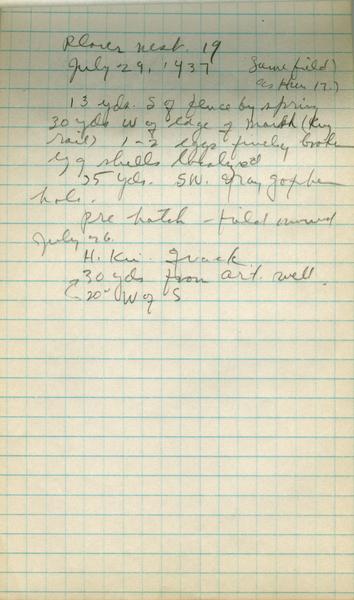 Plover nest. 19
July 29, 1937 Same field)
as Kill 17.)
13 yds. S of fence by spring
30 yds W of edge of marsh (King
rail) 1-2 eggs finely broken
egg shells localized
25 yds. SW. gray gopher
hole.
pre hatch - field mowed
July 26.
H. Kii.
30 yds from art. well.
20° W of S